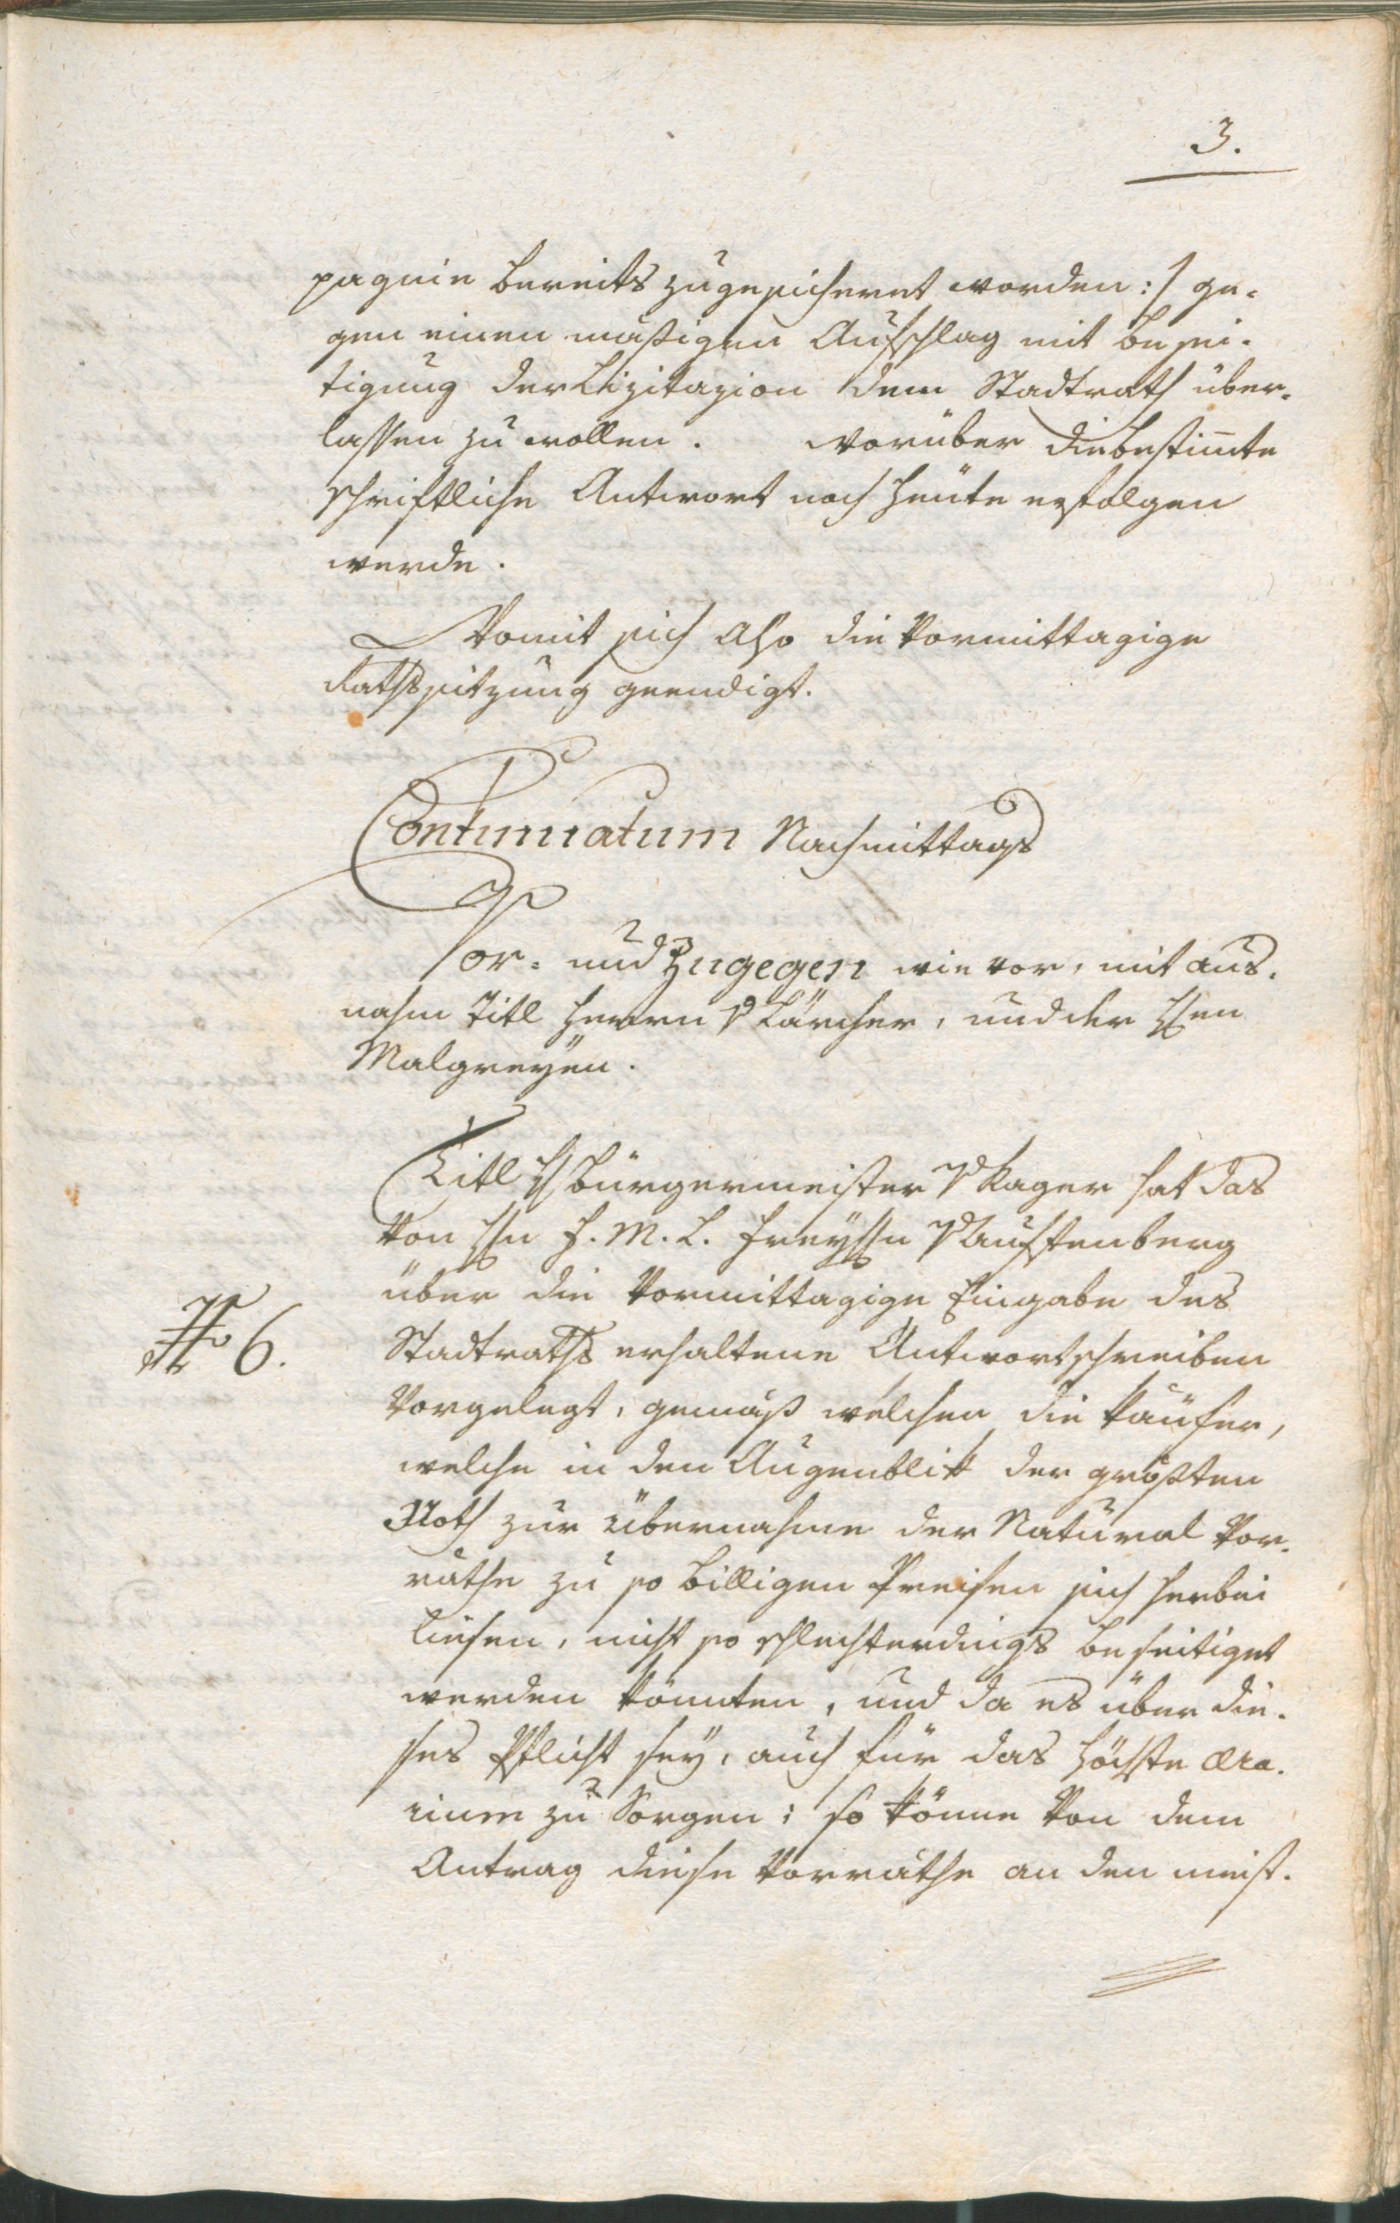 3.
pagnie bereits zugesicheret worden :/ ge-
gen einen mäßigen Aufschlag mit besei-
tigung der Lizitazion dem Stadtrath über-
lassen zu wollen. worüber die bestim̅te
schriftliche Antwort noch heüte erfolgen
werde.
Womit sich also die Vormittagige
Rathssitzung geendigt.
Continuatum Nachmittags
Vor- und Zugegen wie vor, mit aus-
nahm Titl Herrn v Lärcher, und der Hen
Malgreyen.
Titl H Bürgermeister v Kager hat das
von Hn F. M. L. Freyhn v Auffenberg
über die Vormittagige Eingabe des
Stadtraths erhaltene Antwortschreiben
No 6.
vorgelegt, gemäß welchen die Käufer,
welche in den Augenblik der größten
Noth zur Übernahme der Natural Vor-
räthe zu so billigen Preisen sich herbei
liesen, nicht so schlechterdings beseitiget
werden könnten, und da es über die-
ses Pflicht seÿ, auch für das höchste æra-
rium zu Sorgen; so könne von dem
Antrag diese Vorräthe an den meist-